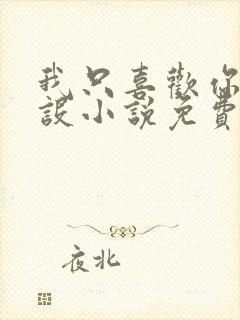 我只喜歡你
設小說免費
夜北